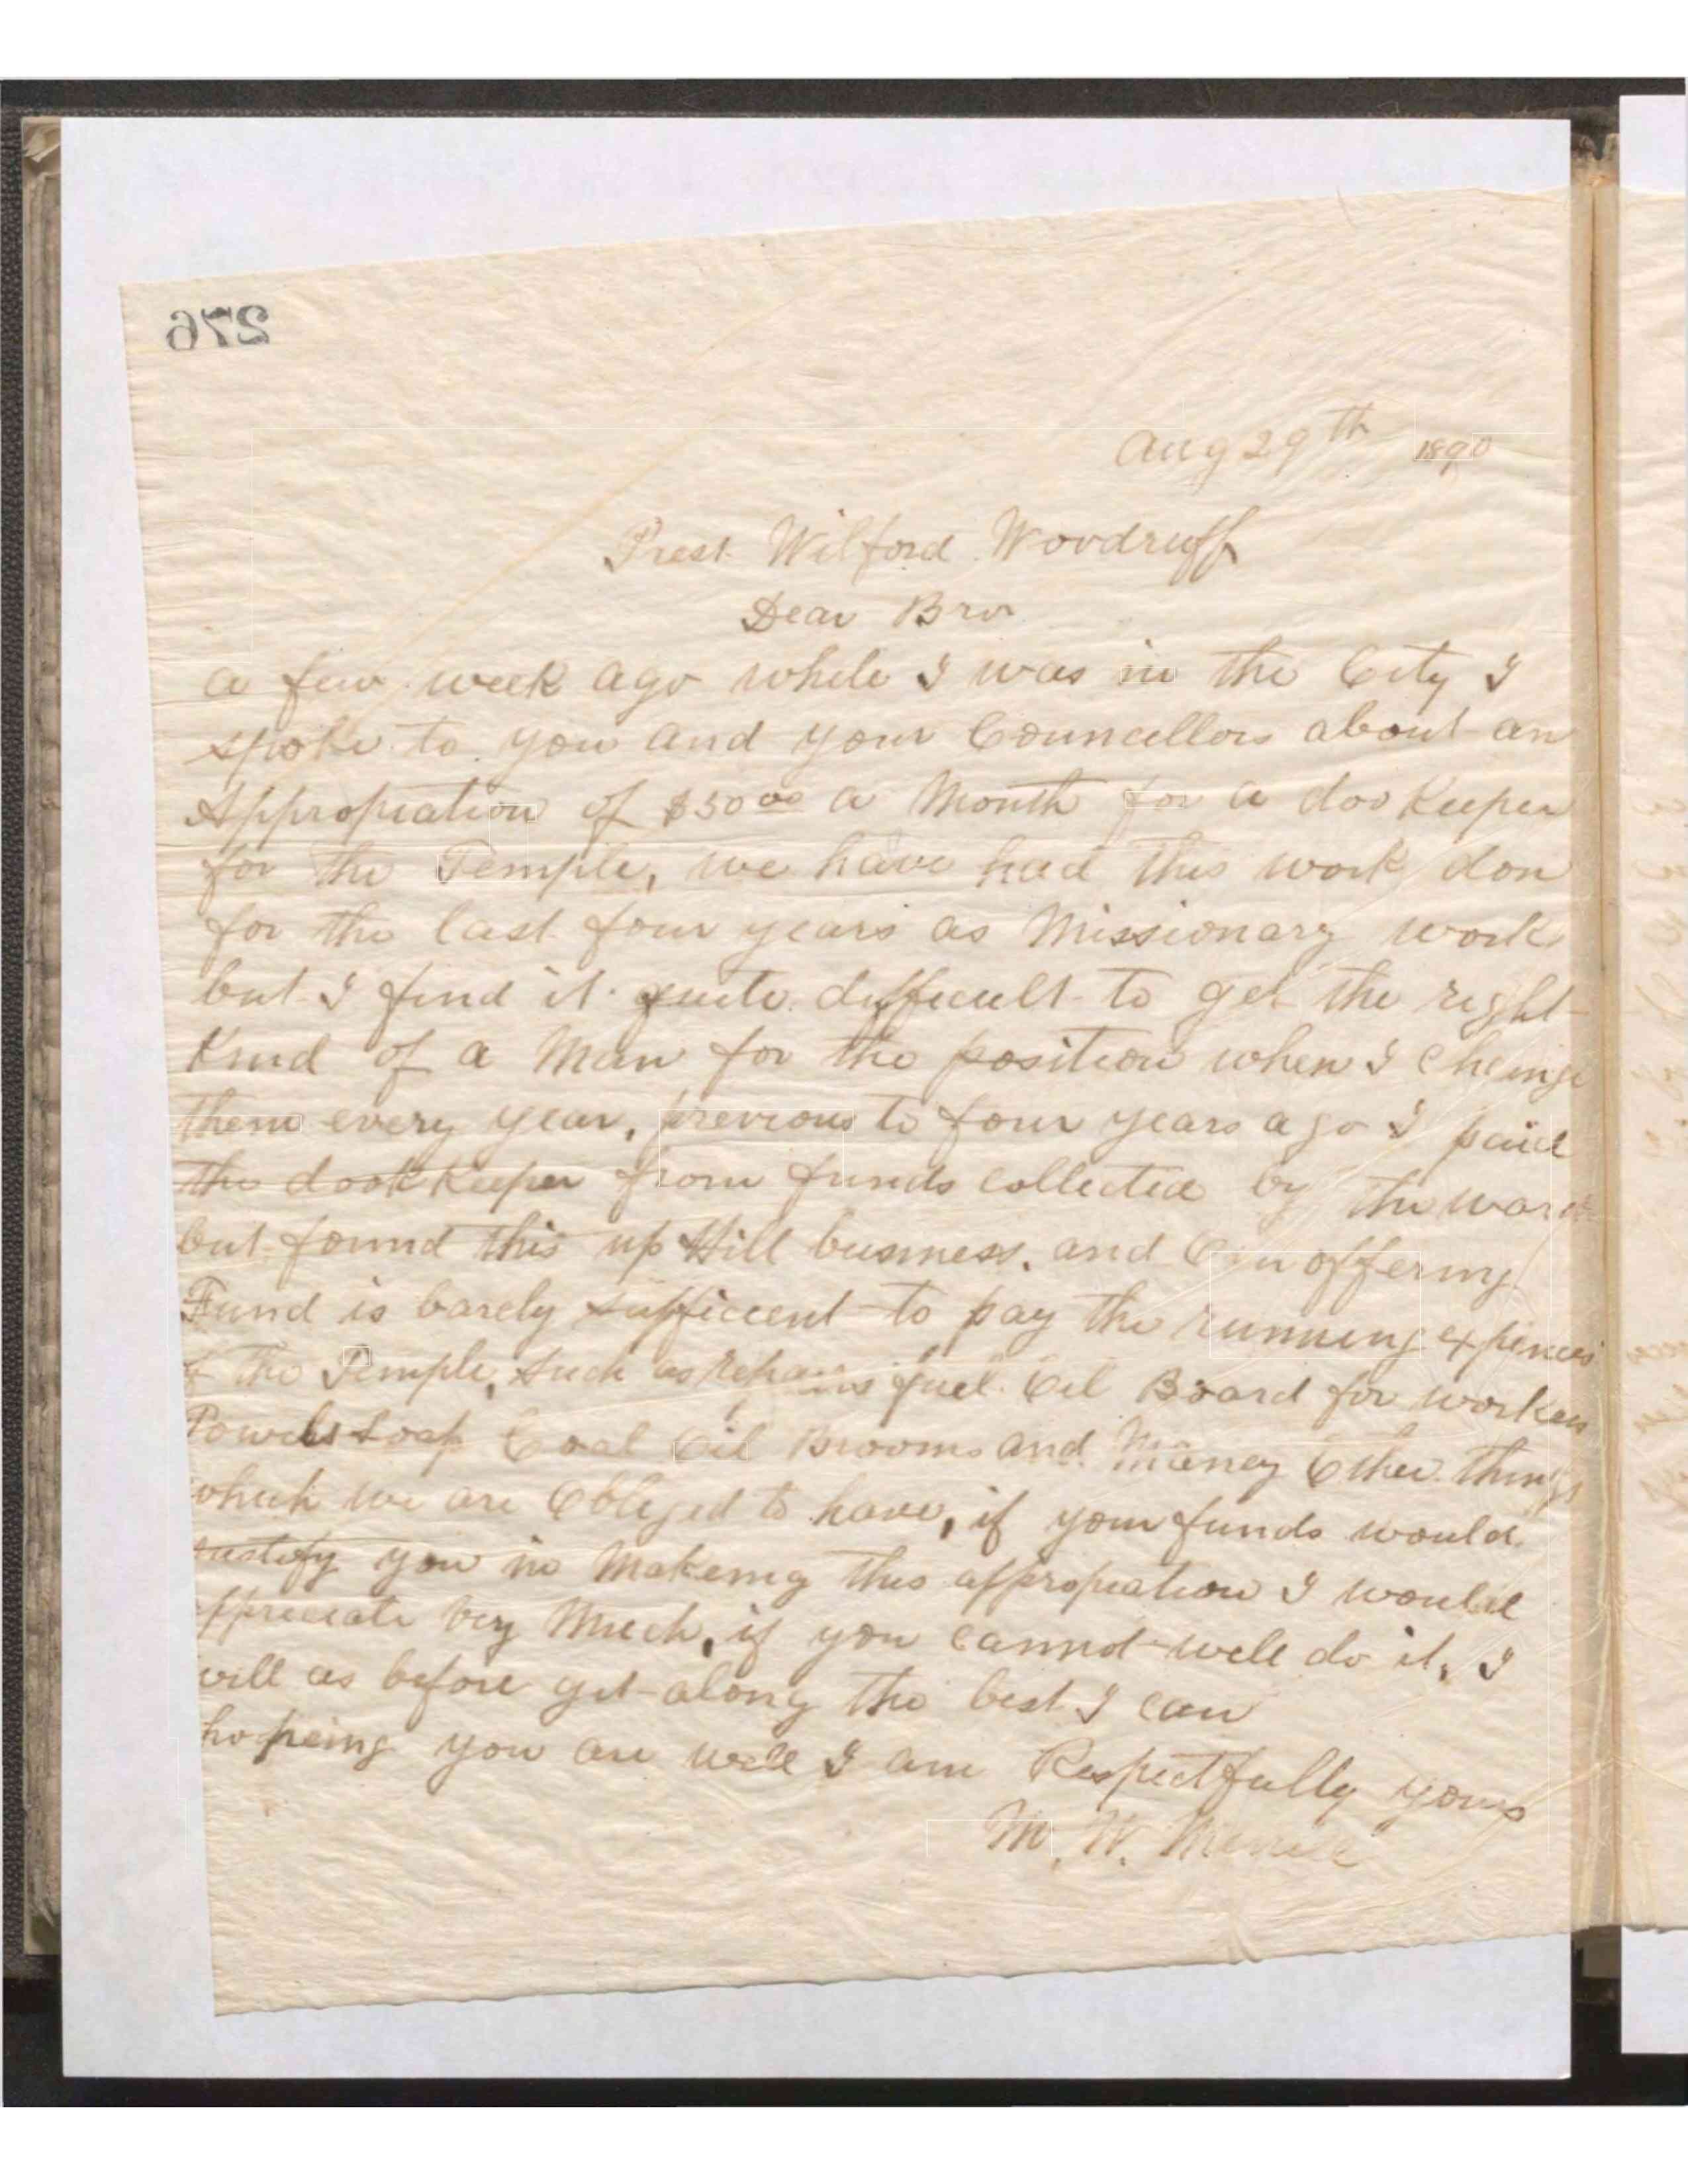 276
Aug 29th 1890
Prest. Wilford Woodruff
Dear Bro
a few week ago while I was in the City I
spoke to you and your Councellors about an
Appropiation of $50 00 a Month for a doo Keeper
for the Temple, we have had this work don
for the last four years as Missionary work
but I find it quite difficult to get the right
Kind of a Man for the position when I change
them every year, previous to four years ago I paid
the dook keeper from funds collected by the ward
but found this up Hill business. and Our offering
Fund is barely sufficient to pay the running expences
of the Temple, such as repairs fuel Oil Board for workers
Towels Soap Coal Oil Brooms and Maney Other things
which we are Obliged to have, if your funds would
justify you in Makeing this appropiation I would
appreciate very Much, if you cannot well do it, I
will as before get along the best I can
hopeing you are well I am Respectfully yours
M. W. Merrill